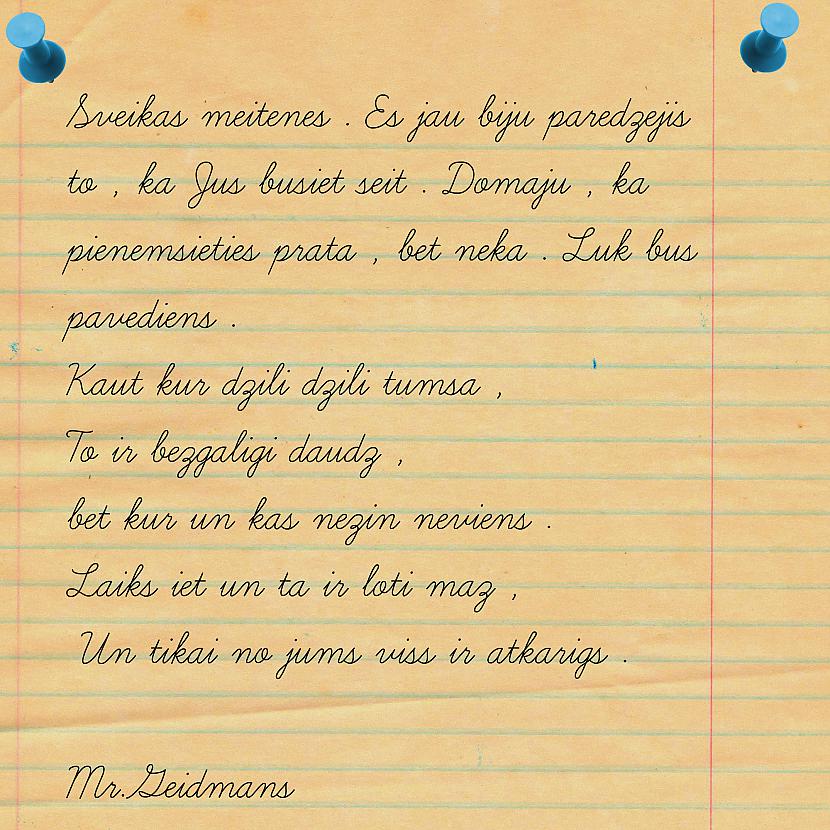 Sveikas meitenes . Es jau biju paredzejis
to , ka Jus busiet seit . Domaju , ka
pienemsieties prata , bet neka . Luk bus
pavediens .
Kaut kur dzili dzili tumsa ,
To ir bezgaligi daudz ,
bet kur un kas nezin neviens .
Laiks iet un ta ir loti maz ,
Un tikai no jums viss ir atkarigs .
Mr.Geidmans